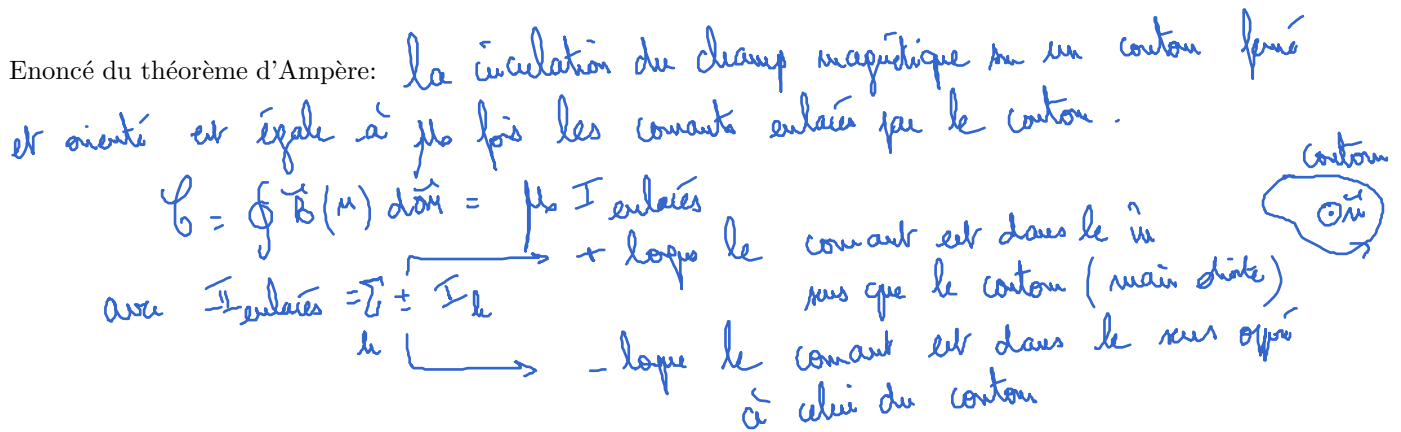 Enoncé du théorème d'Ampère: la circulation du champ magnétique sur un contour fermé
et orienté est égale à μ₀ fois les courants enlacés par le contour.
contour
𝒞 = ∮ B⃗(M) dOM⃗ = μ₀ I enlacés
⊙ n⃗
+ lorsque le courant est dans le m̂
avec I enlacés = Σ ± I_k
sens que le contour (main droite)
k
- lorsque le courant est dans le sens opposé
à celui du contour